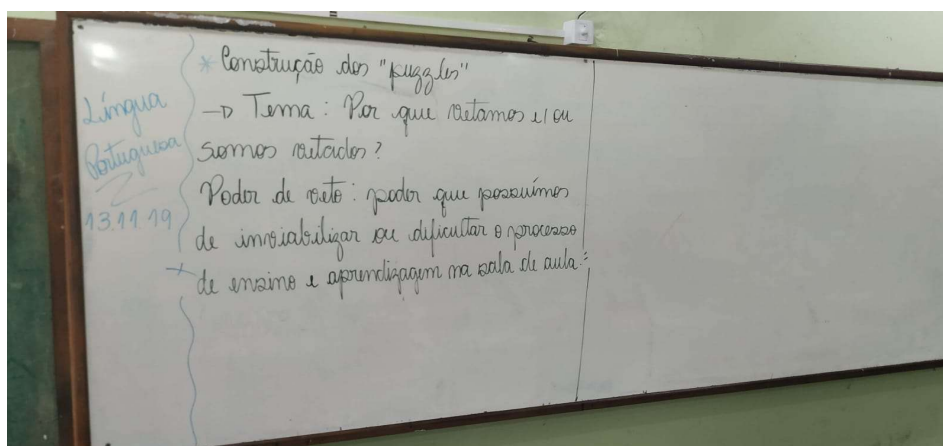 Língua
Portuguesa
13.11.19
* Construção dos "puzzles"
→ Tema: Por que vetamos e/ou
somos vetados?
Poder de veto: poder que possuímos
de inviabilizar ou dificultar o processo
de ensino e aprendizagem na sala de aula.